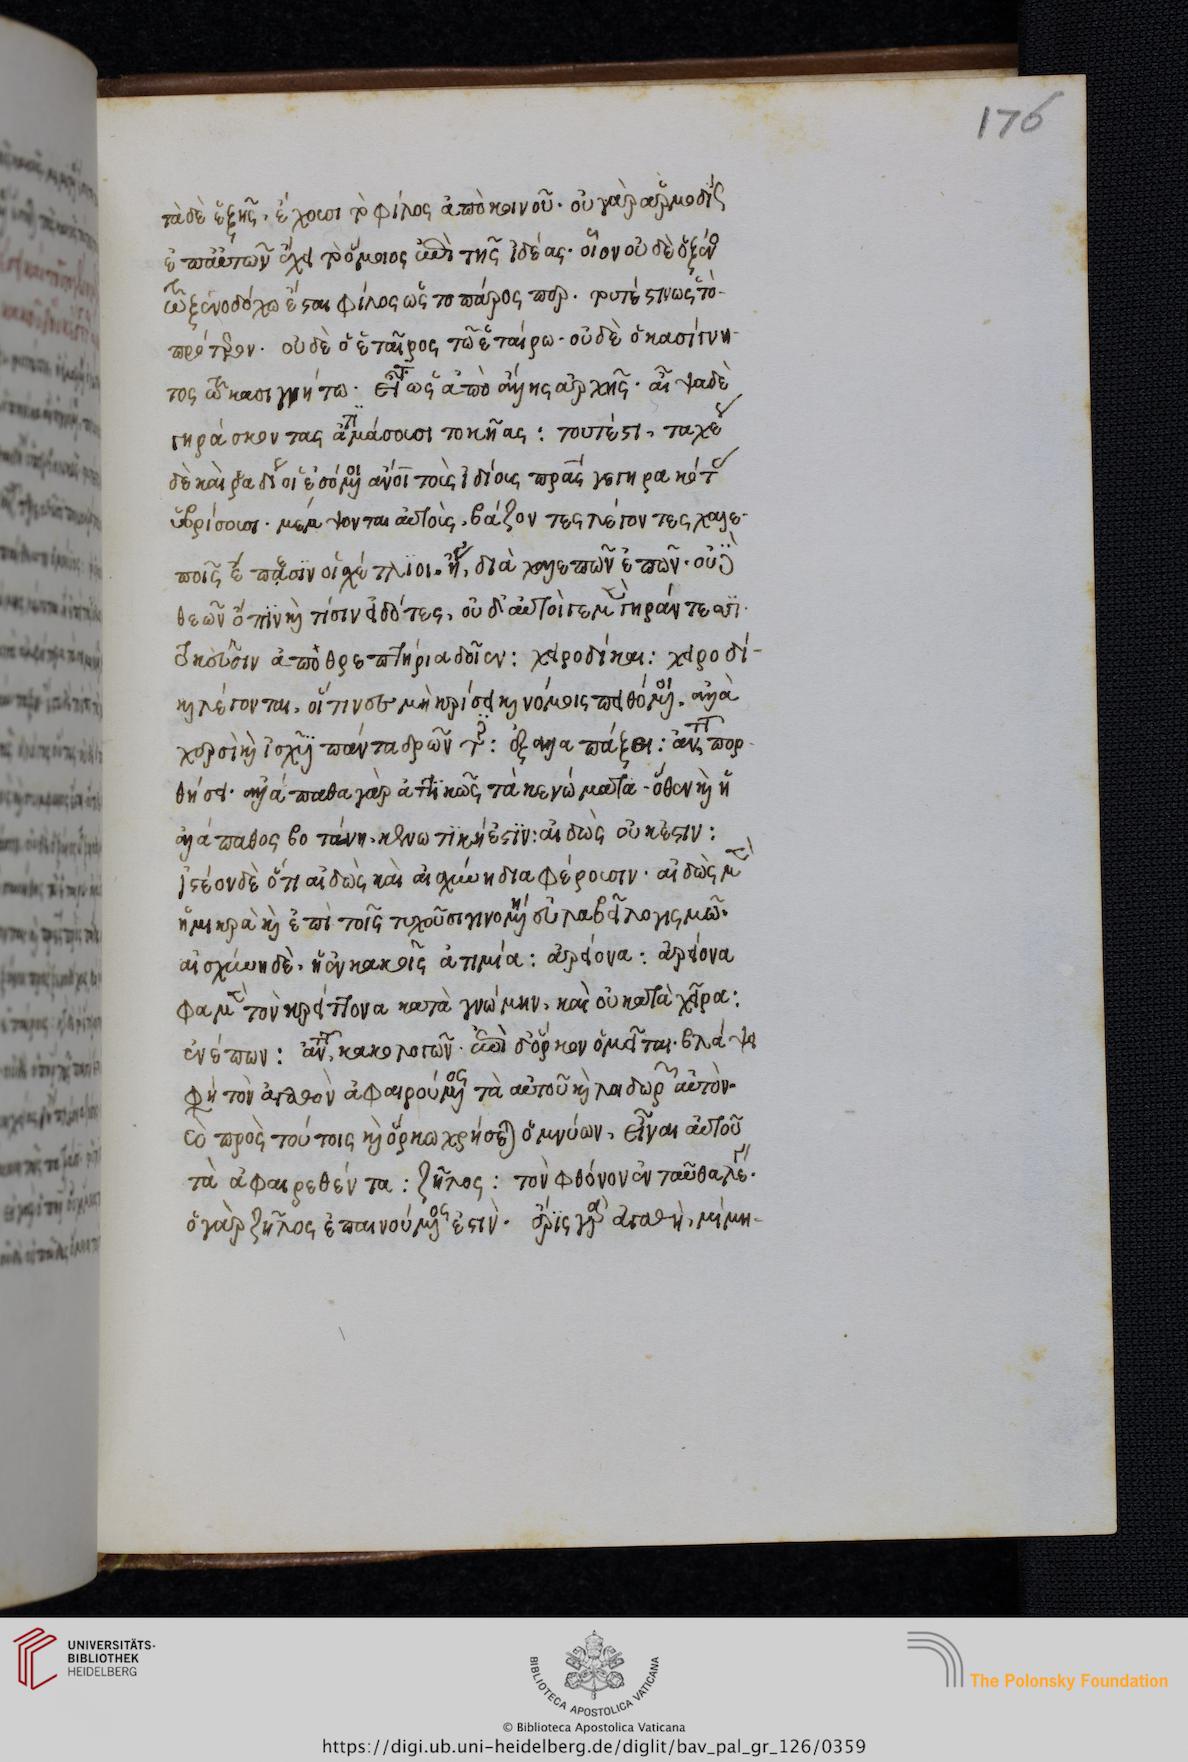 176
τὰ δὲ ἑξῆς, ἔχουσι τὸ φίλος ἀπὸ κοινοῦ· οὐ γὰρ ἁρμοδίως
ἐπ' αὐτῶν ἔχει τὸ ὅμοιος ἀπὸ τῆς ἰδέας· οἷον οὐδὲ ὁ ξένος
τῷ ξεινοδόχω ἔσται φίλος ὡς τὸ πάρος περ. τουτέστιν ὡς τὸ
πρότερον· οὐδὲ ὁ ἑταῖρος τῶ ἑταίρω· οὐδὲ ὁ κασίγνη-
τος τῷ κασιγνήτω· εἶτ' ὡς ἀπὸ ἄλλης ἀρχῆς· αἶψα δὲ
γηράσκοντας ἀτιμάσουσι τοκῆας: τουτέστι, ταχέως
δὲ καὶ ῥαδίως οἱ ἐσόμενοι ἄνθρωποι τοὺς ἰδίους πατέρας γεγηρακότας
ὑβρίσουσι· μέμψονται αὐτοὺς, βάζοντες λέγοντες χαλε-
ποῖς ἔπεσιν οἱ σχέτλιοι. ἤγουν, διὰ χαλεπῶν ἐπῶν· οὐδὲ
θεῶν ὄπιν καὶ τίσιν εἰδότες, οὐδ' αὐτοὶ γε μὲν γηράντεσσι
τοκεῦσιν ἀπὸ θρεπτήρια δοῖεν: χειροδίκαι: χειροδί-
και λέγονται, οἵτινες μὴ κρίσει καὶ νόμοις πειθόμενοι, ἀλλὰ
χερσὶ καὶ ἰσχύϊ πάντα δρῶντες: ἐξαλαπάξει: ἀντὶ τοῦ πορ-
θήσει· ἀλάπαθα γὰρ ἀττικῶς τὰ κενώματα· ὅθεν καὶ ἡ
ἀλάπαθος βοτάνη, κενωτική ἐστιν: αἰδὼς οὐκ ἔστιν:
ἰστέον δὲ ὅτι αἰδὼς καὶ αἰσχύνη διαφέρουσιν· αἰδὼς μὲν
αἰσχύνη δὲ, ἡ ἐν κακοῖς ἀτιμία: ἀρείονα: ἀρείονα
φαμὲν τὸν κρείττονα κατὰ γνώμην, καὶ οὐ κατὰ χεῖρα:
ἐνέπων: ἀντὶ τοῦ, κακολογῶν· ἐπὶ δ' ὅρκον ὀμεῖται· βλάψει
φησὶ τὸν ἀγαθὸν ἀφαιρούμενος τὰ αὐτοῦ καὶ λοιδωρῶν αὐτὸν·
καὶ πρὸς τούτοις καὶ ὅρκω χρήσεται ὀμνύων, εἶναι αὐτοῦ
τὰ ἀφαιρεθέντα: ζῆλος: τὸν φθόνον ἐνταῦθα λέγει·
ὁ γὰρ ζῆλος ἐπαινούμενος ἐστὶν· ἔρις γὰρ ἀγαθὴ, μίμη-
UNIVERSITÄTS-
BIBLIOTHEK
HEIDELBERG
BIBLIOTECA APOSTOLICA VATICANA
The Polonsky Foundation
© Biblioteca Apostolica Vaticana
https://digi.ub.uni-heidelberg.de/diglit/bav_pal_gr_126/0359